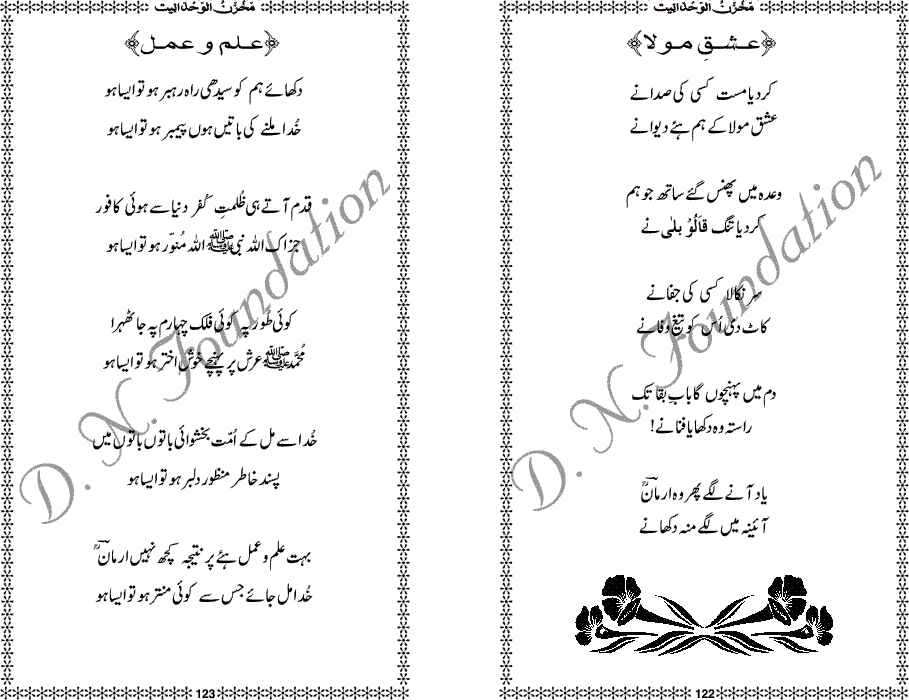 مَخْزَنُ الْوَحْدَانِیت
﴿عشقِ مولا﴾
کردیا مست کسی کی صدا نے
عشق مولا کے ہم ہئے دیوانے
وعدہ میں پھنس گئے ساتھ جو ہم
کر دیا تنگ قَالُوْ بلٰی نے
سر نکالا کسی کی جفا نے
کاٹ دی اُس کو تیغِ وفا نے
دم میں پہنچوں گا بابِ بقا تک
راستہ وہ دکھایا فنا نے!
یاد آنے لگے پھر وہ ارمانؔ
آئینہ میں لگے منہ دکھانے
122
مَخْزَنُ الْوَحْدَانِیت
﴿علم و عمل﴾
دکھائے ہم کو سیدھی راہ رہبر ہو تو ایسا ہو
خُدا ملنے کی باتیں ہوں پیمبر ہو تو ایسا ہو
قدم آتے ہی ظُلمتِ کُفر دنیا سے ہوئی کافور
جزاک اللہ نبی ﷺ اللہ مُنوّر ہو تو ایسا ہو
کوئی طُور پہ کوئی فلک چہارم پہ جا ٹھہرا
مُحمّد ﷺ عرش پر پہنچے خوش اختر ہو تو ایسا ہو
خُدا سے مل کے اُمّت بخشوائی باتوں باتوں میں
پسند خاطر منظور دلبر ہو تو ایسا ہو
بہت علم و عمل ہئے پر نتیجہ کچھ نہیں ارمانؔ
خُدا مل جائے جس سے کوئی منتر ہو تو ایسا ہو
123
D. N. Foundation
D. N. Foundation